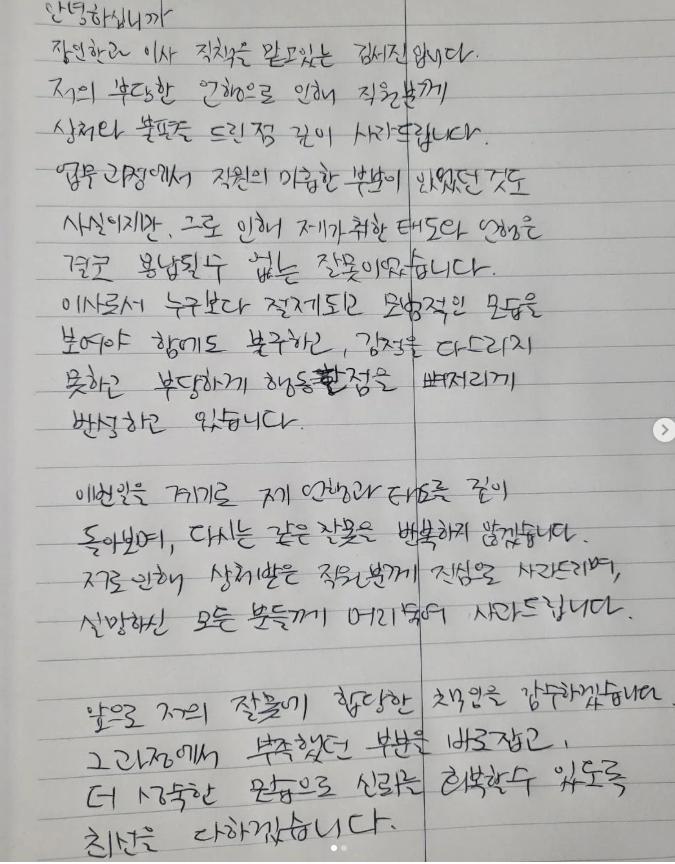 안녕하십니까
장인한과 이사 직책을 맡고있는 김서진입니다.
저의 부당한 언행으로 인해 직원분께
상처와 불편을 드린점 깊이 사과드립니다.
업무 과정에서 직원의 미흡한 부분이 있었던 것도
사실이지만, 그로 인해 제가 취한 태도와 언행은
결코 용납될수 없는 잘못이였습니다.
이사로서 누구보다 절제되고 모범적인 모습을
보여야 함에도 불구하고, 감정을 다스리지
못하고 부당하게 행동한점을 뼈저리게
반성하고 있습니다.
이번일을 계기로 제 언행과 태도를 깊이
돌아보며, 다시는 같은 잘못을 반복하지 않겠습니다.
저로인해 상처받은 직원분께 진심으로 사과드리며,
실망하신 모든 분들께 머리숙여 사과드립니다.
앞으로 저의 잘못에 합당한 책임을 감수하겠습니다
그과정에서 부족했던 부분을 바로잡고,
더 성숙한 모습으로 신뢰를 회복할수 있도록
최선을 다하겠습니다.